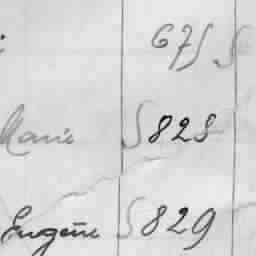 675
Marie 828
Eugène 829